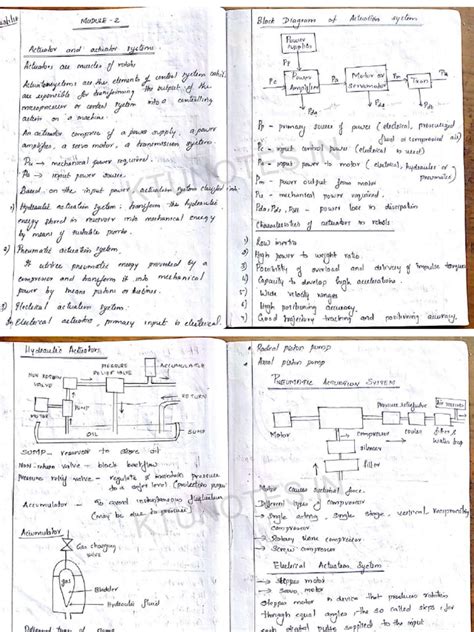 MODULE - 2
Actuator and actuator systems.
Actuators are muscles of robots
Actuation systems are the elements of control system which
are responsible for transforming the output of the
microprocessor or control system into a controlling
action on a machine.
An actuator comprises of a power supply, a power
amplifier, a servo motor, a transmission system.
Pu → mechanical power required.
Ps → input power source.
Based on the input power actuation system classified into
1) Hydraulic actuation system: transform the hydraulic
energy stored in reservoir into mechanical energy
by means of suitable pumps.
2) Pneumatic actuation system.
It utilizes pneumatic energy provided by a
compressor and transform it into mechanical
power by means pistons or turbines.
3) Electrical actuation system.
In Electrical actuators, primary input is electrical
Block Diagram of Actuation system
Power
supplies
Pp
Pc
Power
Amplifier
Pa
Motor or
Servomotor
Pm
Tran
Pu
Pda
Pds
Pp - primary source of power (electrical, pressurized
fluid or compressed air)
Pc - input control power (electrical is used)
Pa - input power to motor (electrical, hydraulics or
pneumatics)
Pm - power output from motor
Pu - mechanical power required.
Pda, Pds, - power loss in dissipation
Characteristics of actuators in robots.
1) Low inertia
2) High power to weight ratio.
3) Possibility of overload and delivery of impulse torque
4) Capacity to develop high accelerations.
5) Wide velocity ranges
6) High positioning accuracy.
7) Good trajectory tracking and positioning accuracy.
Hydraulic Actuators
NON RETURN
VALVE
PRESSURE
RELIEF VALVE
ACCUMULATOR
MOTOR
PUMP
RETURN
OIL
SUMP
SUMP - reservoir to store oil
Non return valve - block backflow
Pressure relief valve - regulate & maintain pressure
to a safer level (protection purpose)
Accumulator - to avoid instantaneous fluctuation
(may be due to pressure)
Accumulator
Gas charging
valve
gas
Bladder
Hydraulic fluid
Different types of pumps
* Radial piston pump
* Axial piston pump
PNEUMATIC ACTUATION SYSTEM
Motor
compressor
silencer
filter
Pressure relief valve
cooler
Air receiver
filter &
water trap
Motor causes rotational force.
Different types of compressors
→ Single acting, single stage, vertical, reciprocating
compressor
→ Rotary Vane compressor
→ Screw compressor
Electrical Actuation System
→ Stepper motor
→ Servo motor
Stepper motor - device that produces rotation
through equal angles, the so called steps, for
each digital pulse supplied to the input
KTUNOTES
KTUNOTES.IN